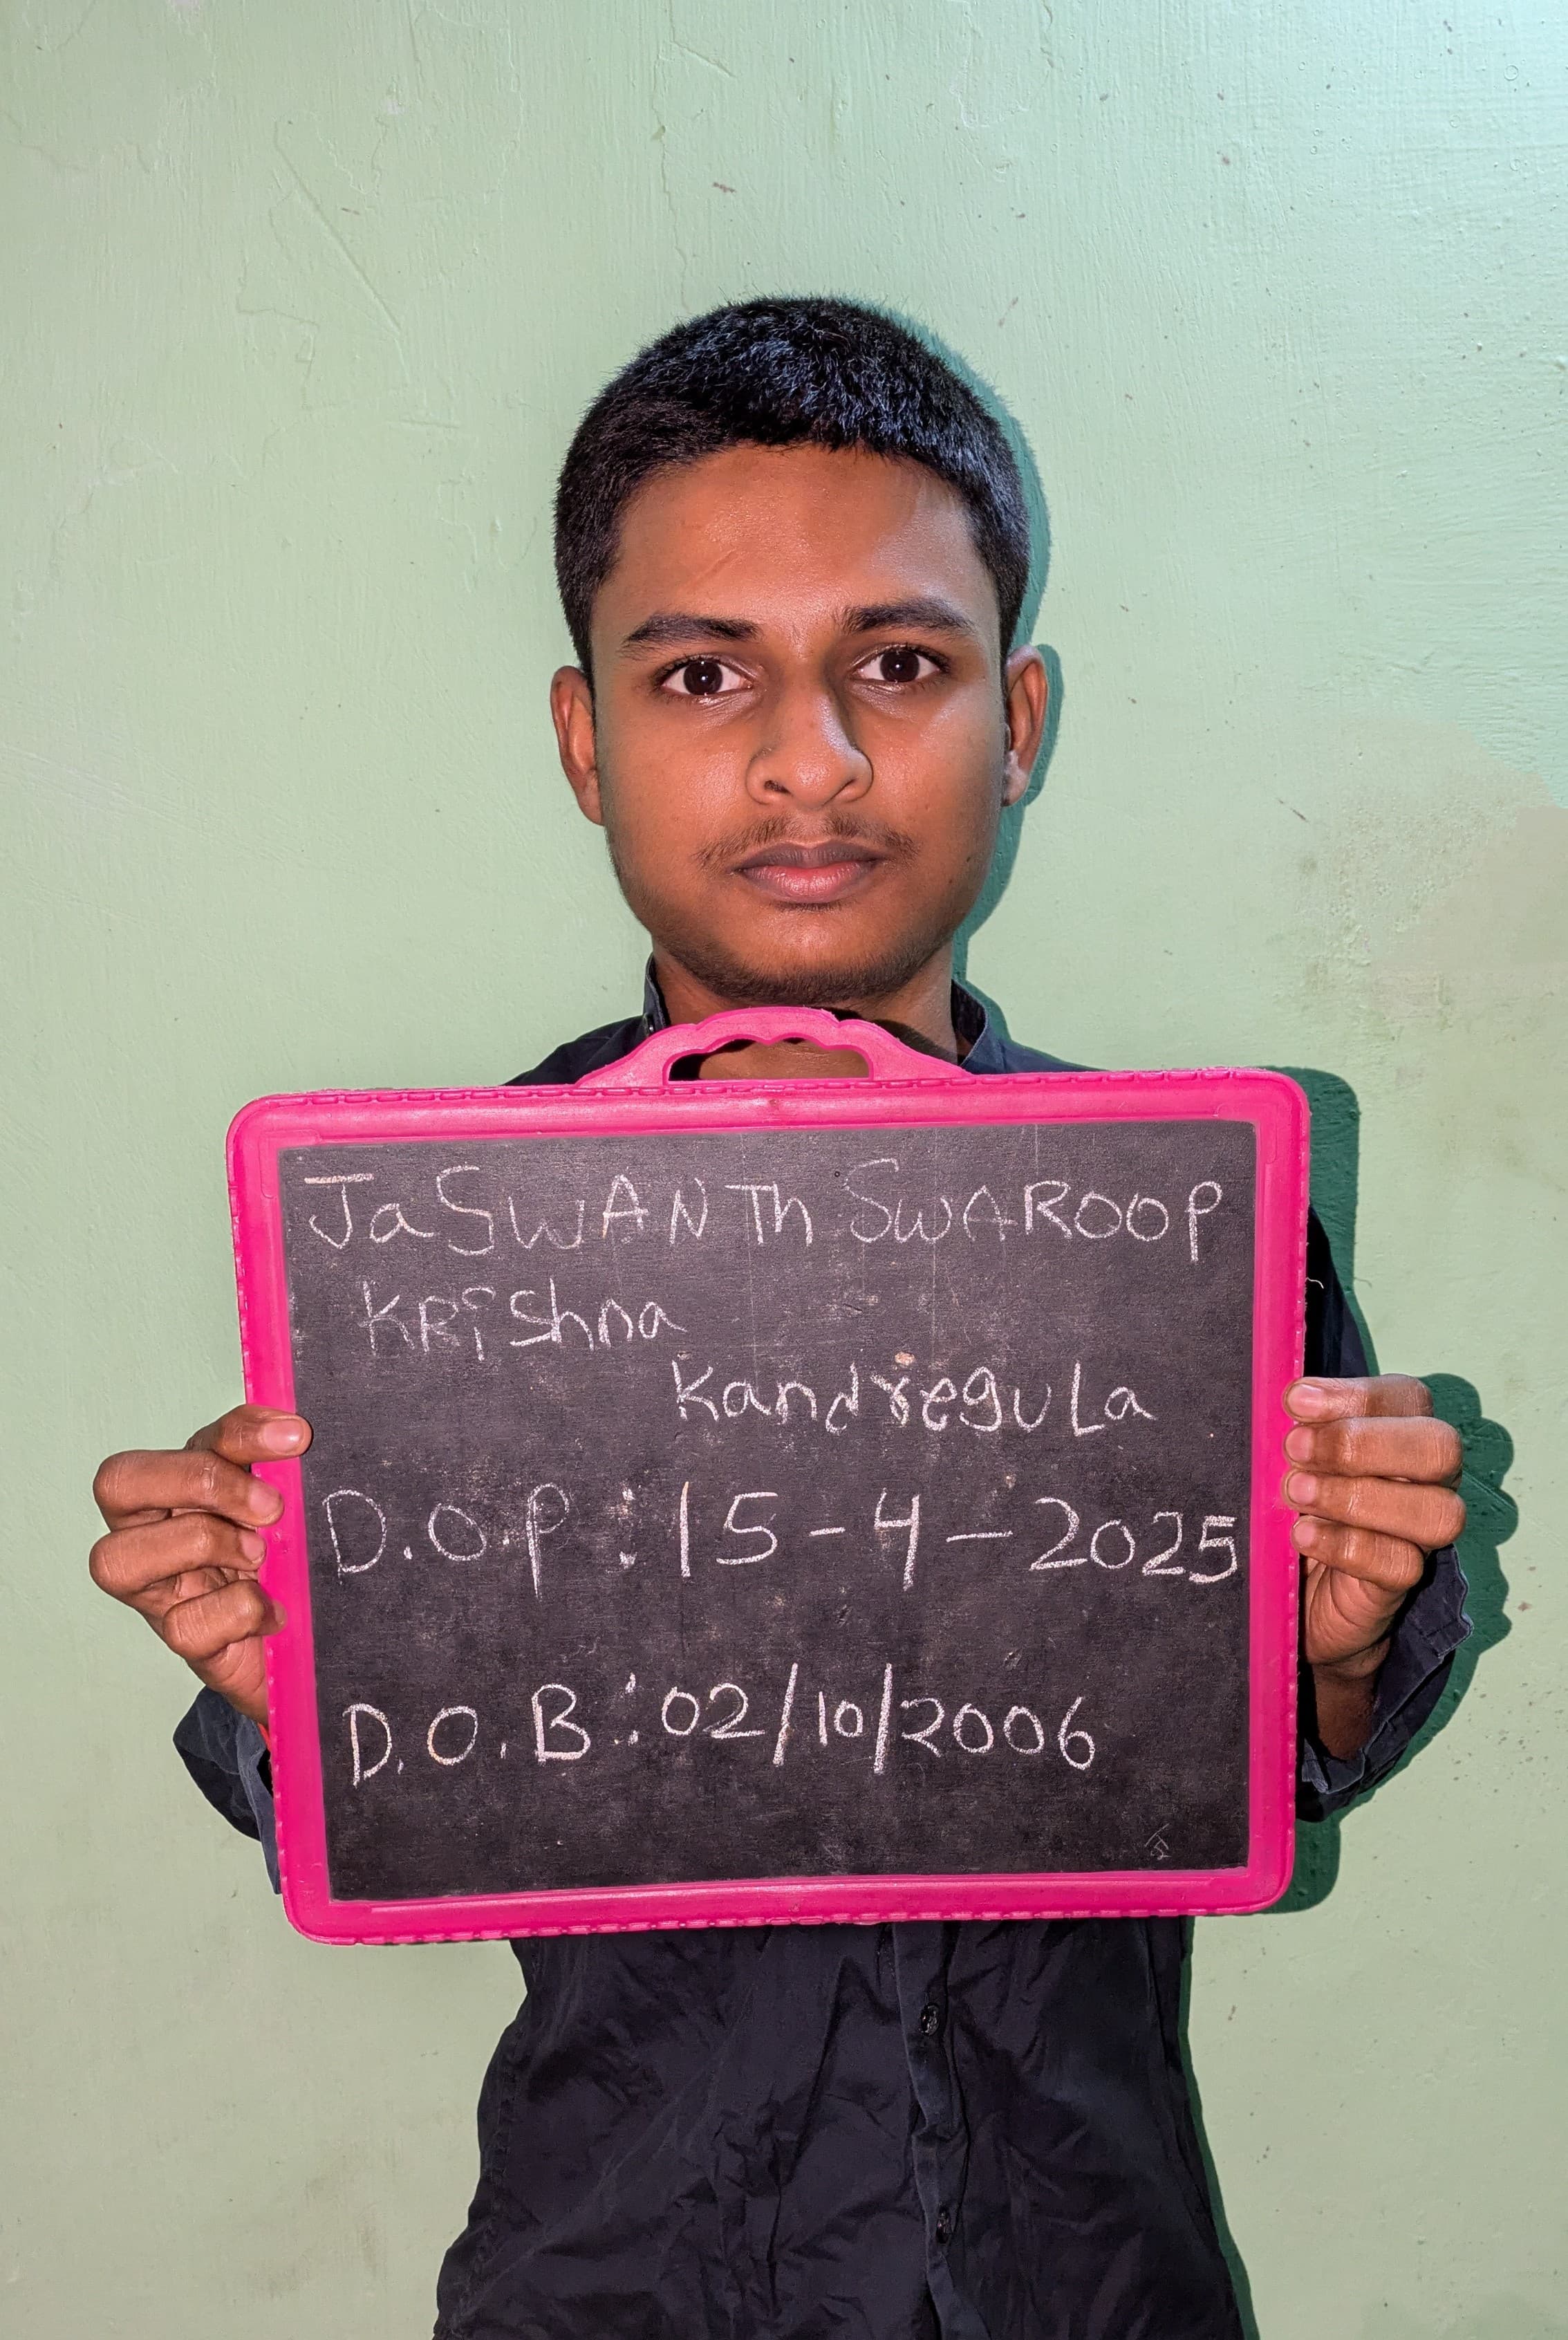 JaSWANTh SWAROOP
KRiShna
KandregULa
D.O.P : 15-4-2025
D.O.B : 02/10/2006